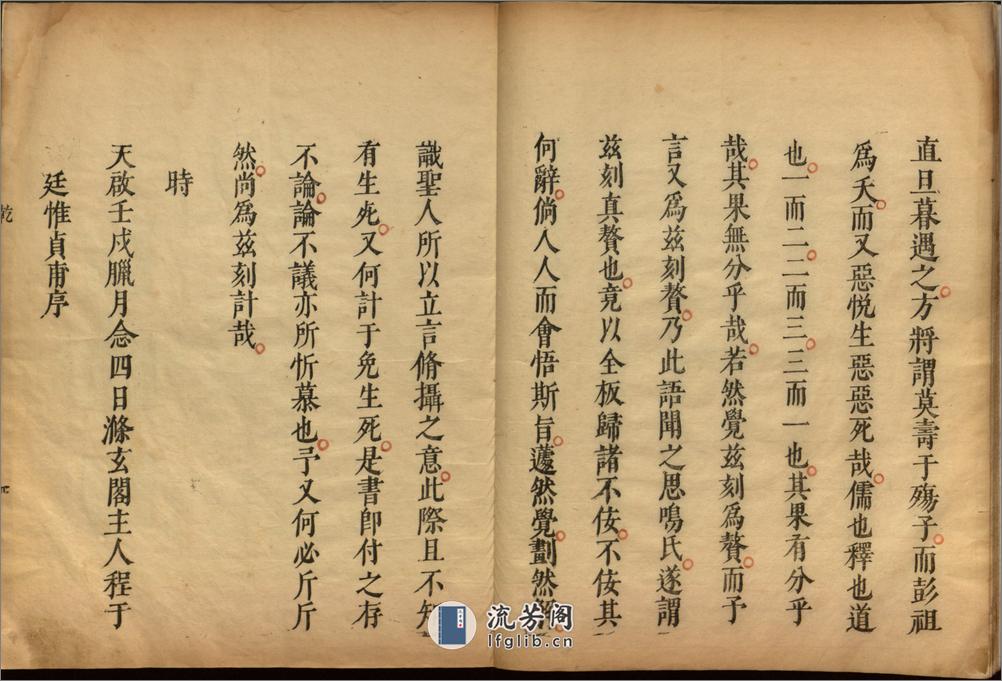 直旦暮遇之方將謂莫壽于殤子而彭祖
爲夭而又惡悦生惡惡死哉儒也釋也道
也一而二二而三三而一也其果有分乎
哉其果無分乎哉若然覺兹刻爲贅而予
言又爲兹刻贅乃此語聞之思鳴氏遂謂
兹刻真贅也竟以全板歸諸不佞不佞其
何辭倘人人而會悟斯旨蘧然覺劃然
識聖人所以立言脩攝之意此際且不知
有生死又何計于免生死是書卽付之存
不論論不議亦所忻慕也予又何必斤斤
然尚爲兹刻計哉
時
天啟壬戌臘月念四日滌玄閣主人程于
廷惟貞甫序
乾
流芳阁
lfglib.cn